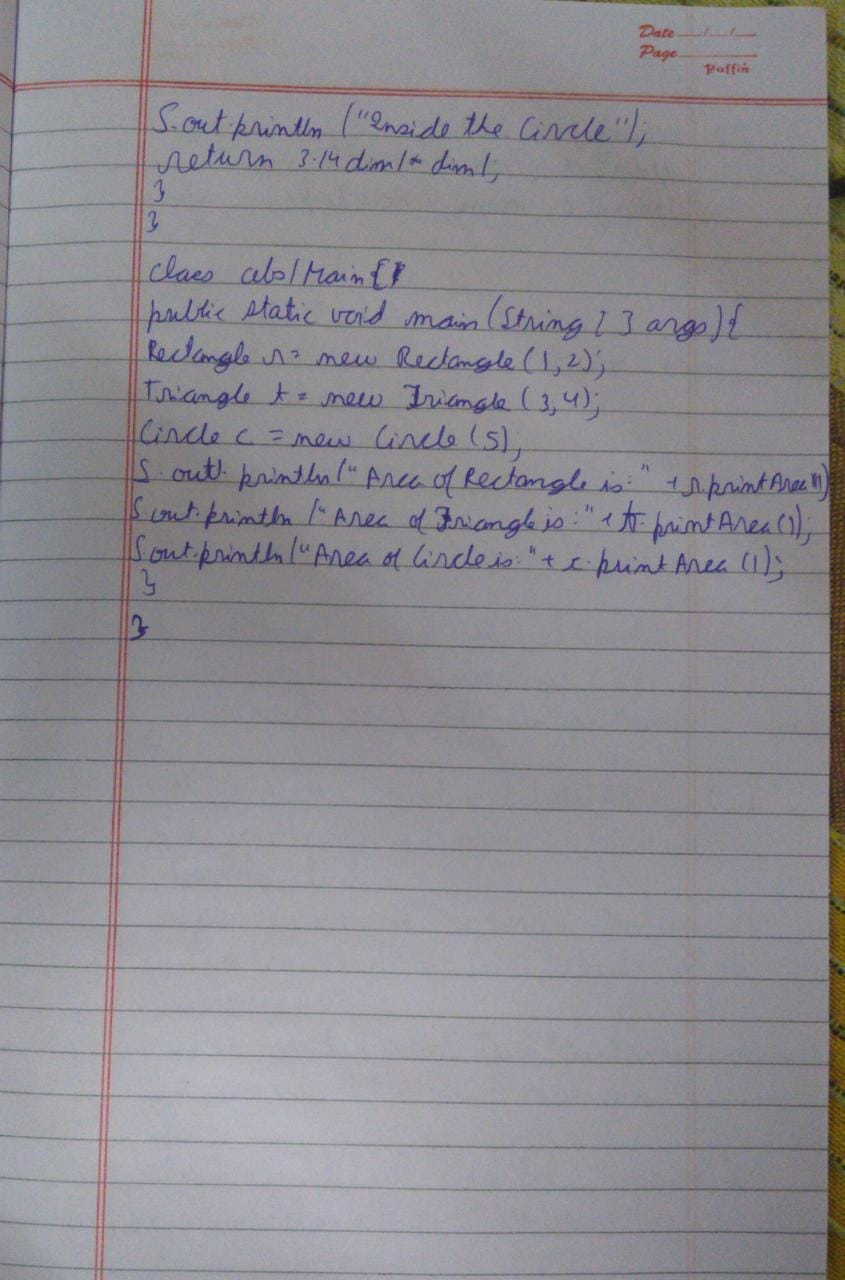 Date __/__/__
Page
Puffin
S.out.println ("Inside the Circle");
return 3.14 dim1 * dim1;
}
}
class abs1Main{
public static void main(String [ ] args){
Rectangle r= new Rectangle (1,2);
Triangle t = new Triangle (3,4);
Circle c = new Circle (5);
S. out. println ("Area of Rectangle is:" + r.printArea())
S.out.println ("Area of Triangle is:" + t. printArea());
S.out.println("Area of Circle is:" + c. printArea ());
}
}